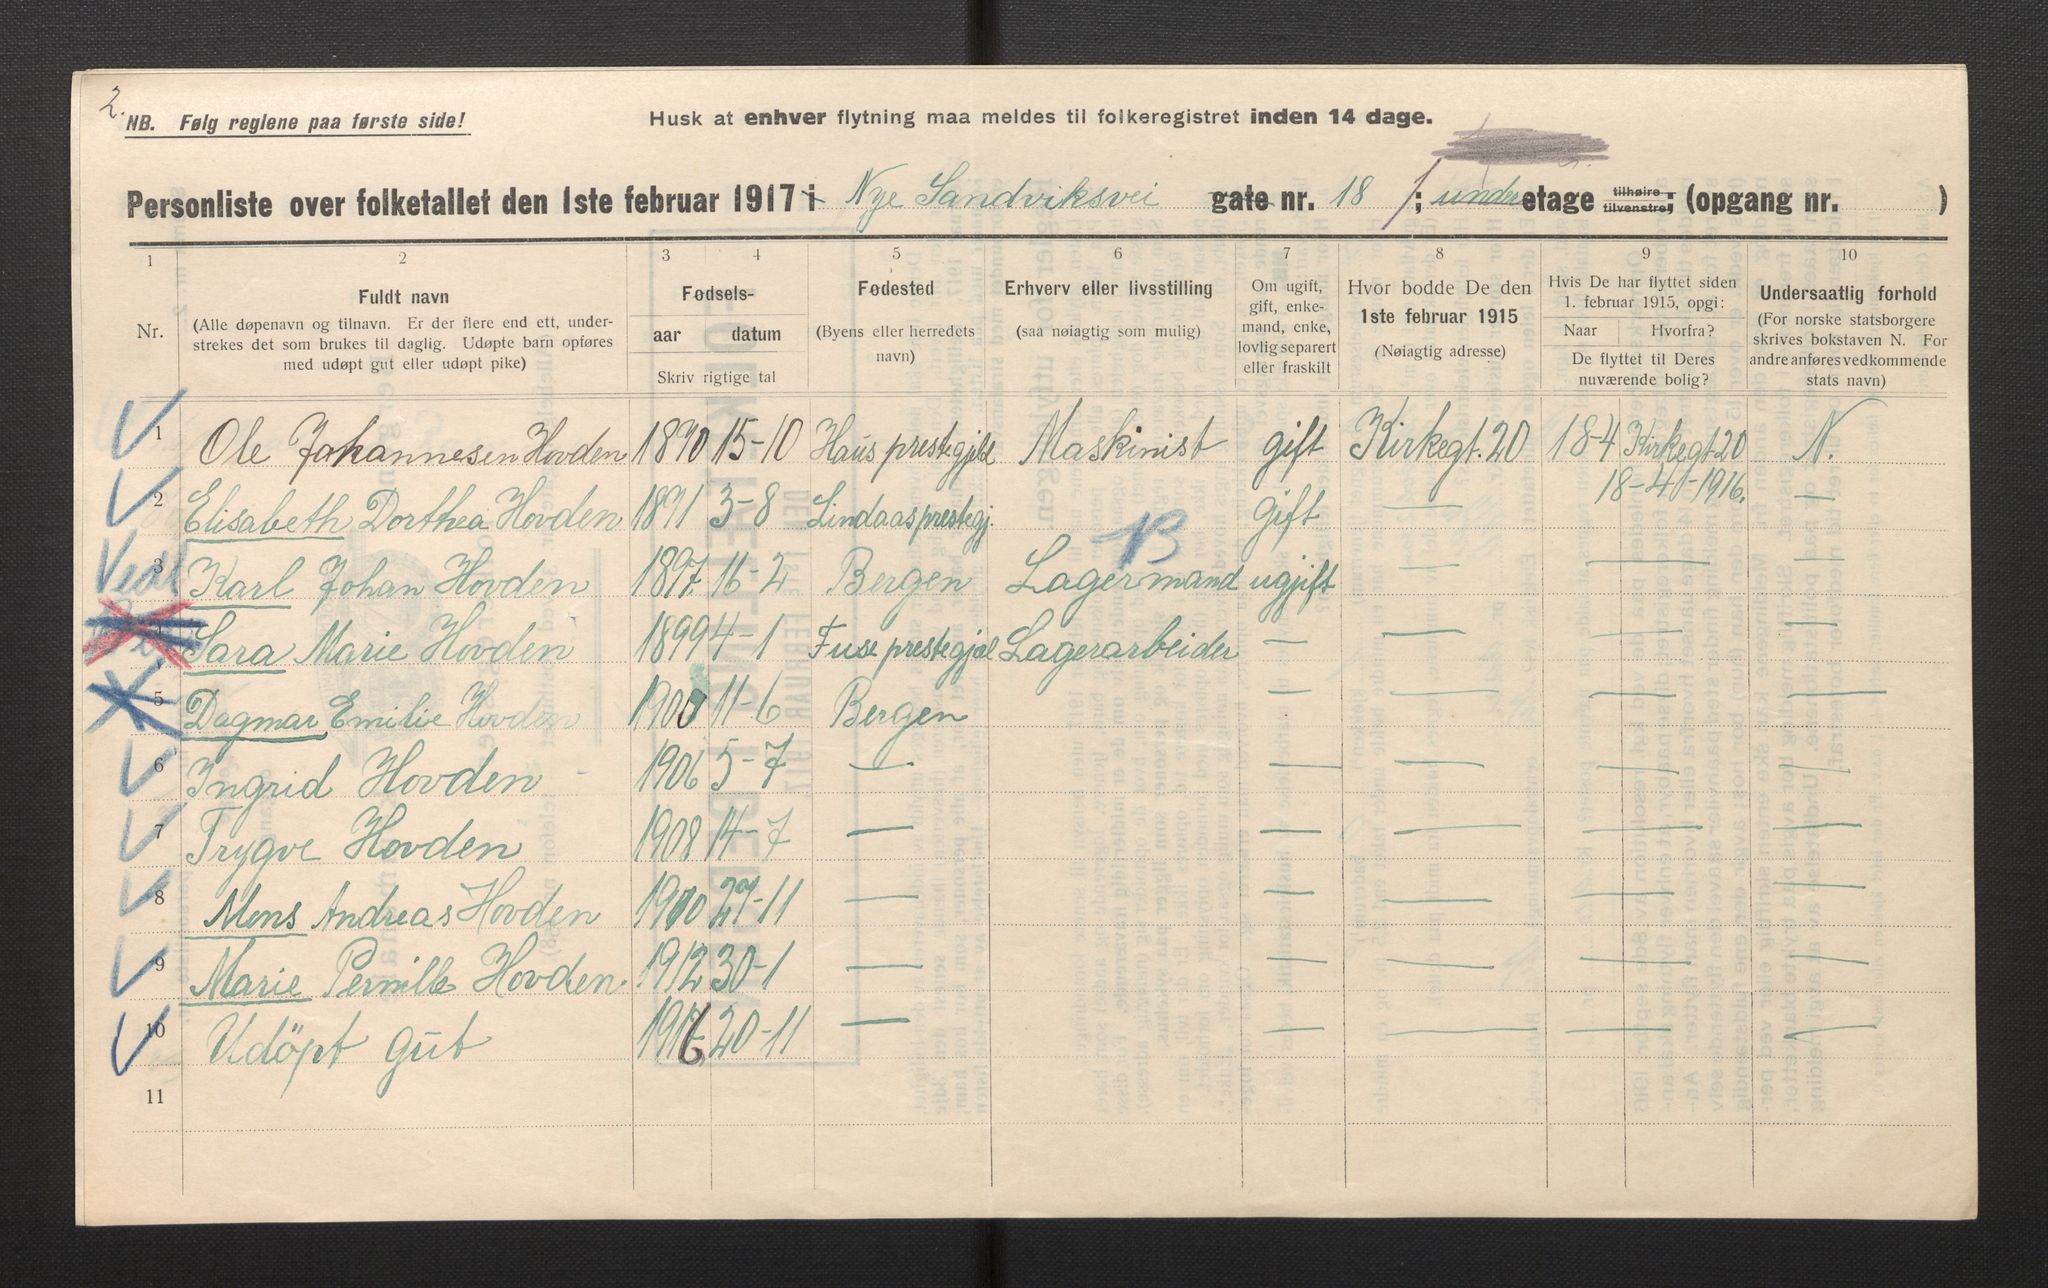 2.
NB. Følg reglene paa første side!
Husk at enhver flytning maa meldes til folkeregistret inden 14 dage.
Personliste over folketallet den 1ste februar 1917 i Nye Sandviksvei gate nr. 18 ; under etage tilhøire tilvenstre ; (opgang nr. )
1 2 3 4 5 6 7 8 9 10
Nr.
Fuldt navn
(Alle døpenavn og tilnavn. Er der flere end ett, under-
strekes det som brukes til daglig. Udøpte barn opføres
med udøpt gut eller udøpt pike)
Fødsels-
aar datum
Skriv rigtige tal
Fødested
(Byens eller herredets
navn)
Erhverv eller livsstilling
(saa nøiagtig som mulig)
Om ugift,
gift, enke-
mand, enke,
lovlig separert
eller fraskilt
Hvor bodde De den
1ste februar 1915
(Nøiagtig adresse)
Hvis De har flyttet siden
1. februar 1915, opgi:
Naar Hvorfra?
De flyttet til Deres
nuværende bolig?
Undersaatlig forhold
(For norske statsborgere
skrives bokstaven N. For
andre anføres vedkommende
stats navn)
1 Ole Johannesen Hovden 1870 15-10 Haus prestegjeld Maskinist gift Kirkegt. 20 18-4 Kirkegt 20 N.
18-4-1916.
2 Elisabeth Dorthea Hovden 1871 3-8 Lindaas prestegj. gift — —
B
3 Karl Johan Hovden 1897 16-2 Bergen Lagermand ugjift — — — —
4 Sara Marie Hovden 1899 4-1 Fuse prestegjæl Lagerarbeider — — — — —
5 Dagmar Emilie Hovden 1900 11-6 Bergen — — — — —
6 Ingrid Hovden 1906 5-7 — — — — — —
7 Trygve Hovden 1908 14-7 — — — — — —
8 Mons Andreas Hovden 1910 29-11 — — — — — —
9 Marie Pernille Hovden. 1912 30-1 — — — — — —
10 Udöpt gut 1916 20-11 — — — — — —
11